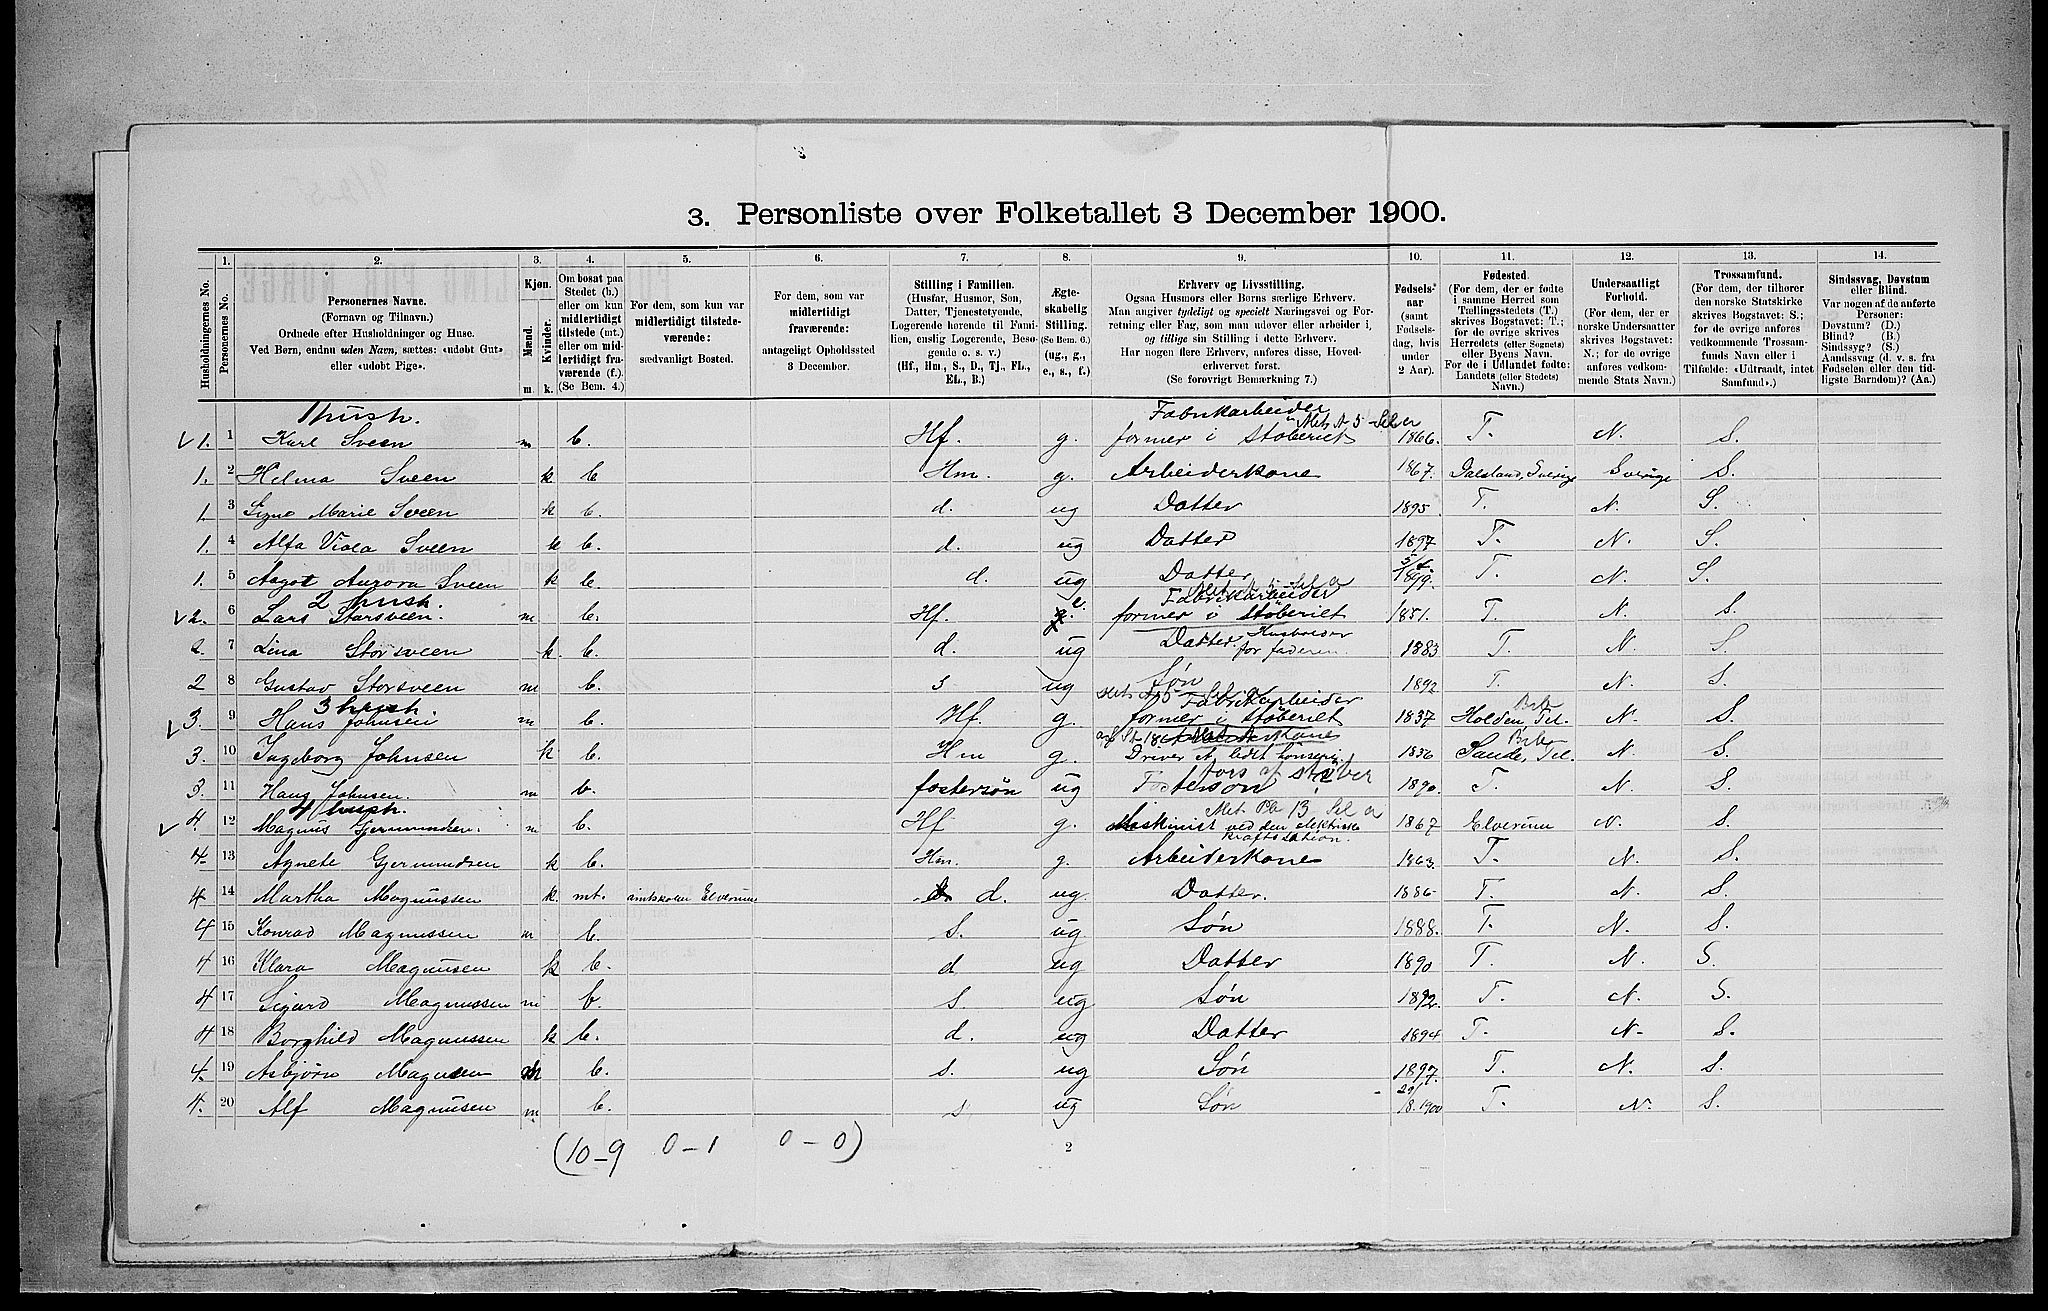 3. Personliste over Folketallet 3 December 1900.
1. 2. 3. 4. 5. 6. 7. 8. 9. 10. 11. 12. 13. 14.
Husholdningernes No.
Personernes No.
Personernes Navne.
(Fornavn og Tilnavn.)
Ordnede efter Husholdninger og Huse.
Ved Børn, endnu uden Navn, sættes: «udøbt Gut»
eller «udøbt Pige».
Kjøn.
Mænd. Kvinder.
m. k.
Om bosat paa
Stedet (b.)
eller om kun
midlertidigt
tilstede (mt.)
eller om mid-
lertidigt fra-
værende (f.)
(Se Bem. 4.)
For dem, som kun var
midlertidigt tilstede-
værende:
sædvanligt Bosted.
For dem, som var
midlertidigt
fraværende:
antageligt Opholdssted
3 December.
Stilling i Familien.
(Husfar, Husmor, Søn,
Datter, Tjenestetyende,
Logerende hørende til Fami-
lien, enslig Logerende, Besø-
gende o. s. v.)
(Hf., Hm., S., D., Tj., FL.,
EL., B.)
Ægte-
skabelig
Stilling.
(Se Bem. 6.)
(ug., g.,
e., s., f.)
Erhverv og Livsstilling.
Ogsaa Husmors eller Børns særlige Erhverv.
Man angiver tydeligt og specielt Næringsvei og For-
retning eller Fag, som man udøver eller arbeider i,
og tillige sin Stilling i dette Erhverv.
Har nogen flere Erhverv, anføres disse, Hoved-
erhvervet først.
(Se forøvrigt Bemærkning 7.)
Fødsels-
aar
(samt
Fødsels-
dag, hvis
under
2 Aar).
Fødested.
(For dem, der er fødte
i samme Herred som
Tællingsstedets (T.)
skrives Bogstavet: T.;
for de øvrige skrives
Herredets (eller Sognets)
eller Byens Navn.
For de i Udlandet fødte:
Landets (eller Stedets)
Navn.)
Undersaatligt
Forhold.
(For dem, der er
norske Undersaatter
skrives Bogstavet:
N.; for de øvrige
anføres vedkom-
mende Stats Navn.)
Trossamfund.
(For dem, der tilhører
den norske Statskirke
skrives Bogstavet: S.;
for de øvrige anføres
vedkommende Trossam-
funds Navn eller i
Tilfælde: «Udtraadt, intet
Samfund».)
Sindssvag, Døvstum
eller Blind.
Var nogen af de anførte
Personer:
Døvstum? (D.)
Blind? (B.)
Sindssyg? (S.)
Aandssvag (d. v. s. fra
Fødselen eller den tid-
ligste Barndom)? (Aa.)
1 hush. Fabrikarbeider
Met. A 5 Sel a
1. 1 Karl Sveen m b. Hf. g. former i Støberiet 1866. T. N. S.
1. 2 Helma Sveen k b Hm. g. Arbeiderkone 1867. Dalsland, Sverige Sverige S.
1. 3 Signe Marie Sveen k b. d. ug Datter 1895. T. N. S.
1. 4 Alfa Viola Sveen k b. d. ug Datter 1897 T. N. S.
1. 5 Aagot Aurora Sveen k b. d. ug Datter 5/4 1899. T. N. S.
2 hush. Met. A 5 Sel a
Fabrikarbeider
2. 6 Lars Storsveen. m b. Hf. e. former i Støberiet 1851. T. N. S.
2 7 Lina Storsveen k b. d. ug Datter. Husholder for faderen. 1883 T. N. S.
2 8 Gustav Storsveen m b. s ug Søn 1892 T. N. S.
3 hush Met A 5 Sel a Fabrikarbeider
3. 9 Hans Johnsen m b. Hf. g. former i Støberiet 1837 Holden, Tel. N. S.
3. 10 Ingeborg Johnsen k b. Hm g. Driver et lidet hønseri 1836 Sande, Tel. N. S.
3. 11 Hans Johnsen. m b. fostersøn ug Fostersøn 1890. T. N S.
4 hush. Met. Bb 13 Sel a
4. 12 Magnus Gjermundsen. m b. Hf g. Maskinist ved den elektriske kraftstation. 1867 Elverum N. S.
4. 13 Agnete Gjermundsen k b. Hm. g. Arbeiderkone 1863. T. N. S.
4 14 Martha Magnussen k. mt. amtskolen Elverum d. ug. Datter. 1886 T. N. S.
4 15 Konrad Magnussen m b. s. ug Søn 1888. T. N. S.
4 16 Klara Magnusen k b. d ug Datter 1890 T. N. S.
4 17 Sigurd Magnussen m b. s ug Søn 1892. T. N. S.
4 18 Borghild Magnussen k b. d. ug Datter 1894 T. N. S.
4. 19 Asbjørn Magnusen m b. s. ug Søn 1897. T. N. S.
4. 20 Alf Magnusen m. b. s ug Søn 29/8. 1900 T. N. S.
(10-9 0-1 0-0)
2